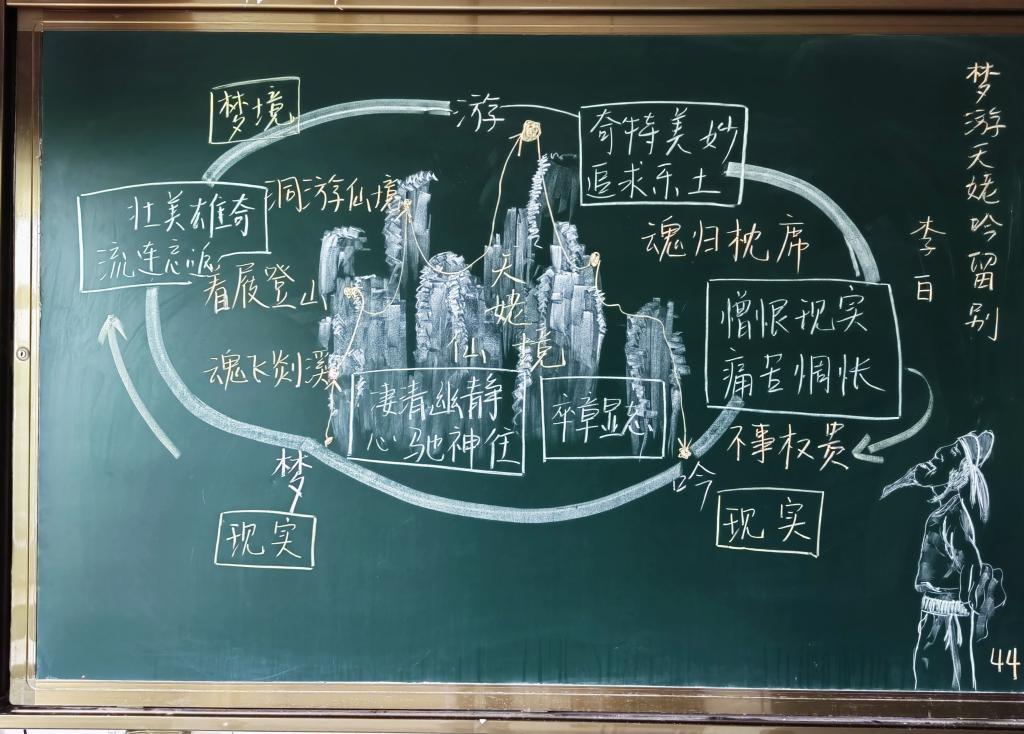 梦游天姥吟留别
李白
梦境
游
奇特美妙
追求乐土
洞游仙境
壮美雄奇
流连忘返
着屐登山
魂归枕席
天姥
仙境
憎恨现实
痛苦惆怅
魂飞剡溪
凄清幽静
心驰神往
卒章显志
不事权贵
梦
吟
现实
现实
44